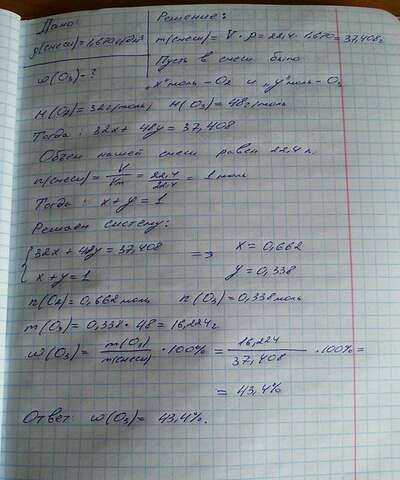 Дано:
ρ(смеси)=1,670 г/дм³
w(O₃)-?
Решение:
m(смеси) = V · ρ = 22,4 · 1,670 = 37,408г
Пусть в смеси было
"x" моль - O₂ и "y" моль - O₃
M(O₂)=32г/моль) M(O₃)=48г/моль
Тогда: 32x + 48y = 37,408
Объем нашей смеси равен 22,4 л.
n(смеси) = V/Vm = 22,4/22,4 = 1 моль
Тогда: x+y = 1
Решаем систему:
{ 32x + 48y = 37,408 => x = 0,662
x + y = 1 y = 0,338
n(O₂)=0,662 моль n(O₃)=0,338 моль
m(O₃) = 0,338 · 48 = 16,224г
w(O₃) = m(O₃)/m(смеси) · 100% = 16,224/37,408 · 100% =
= 43,4%
Ответ: w(O₃) = 43,4%.